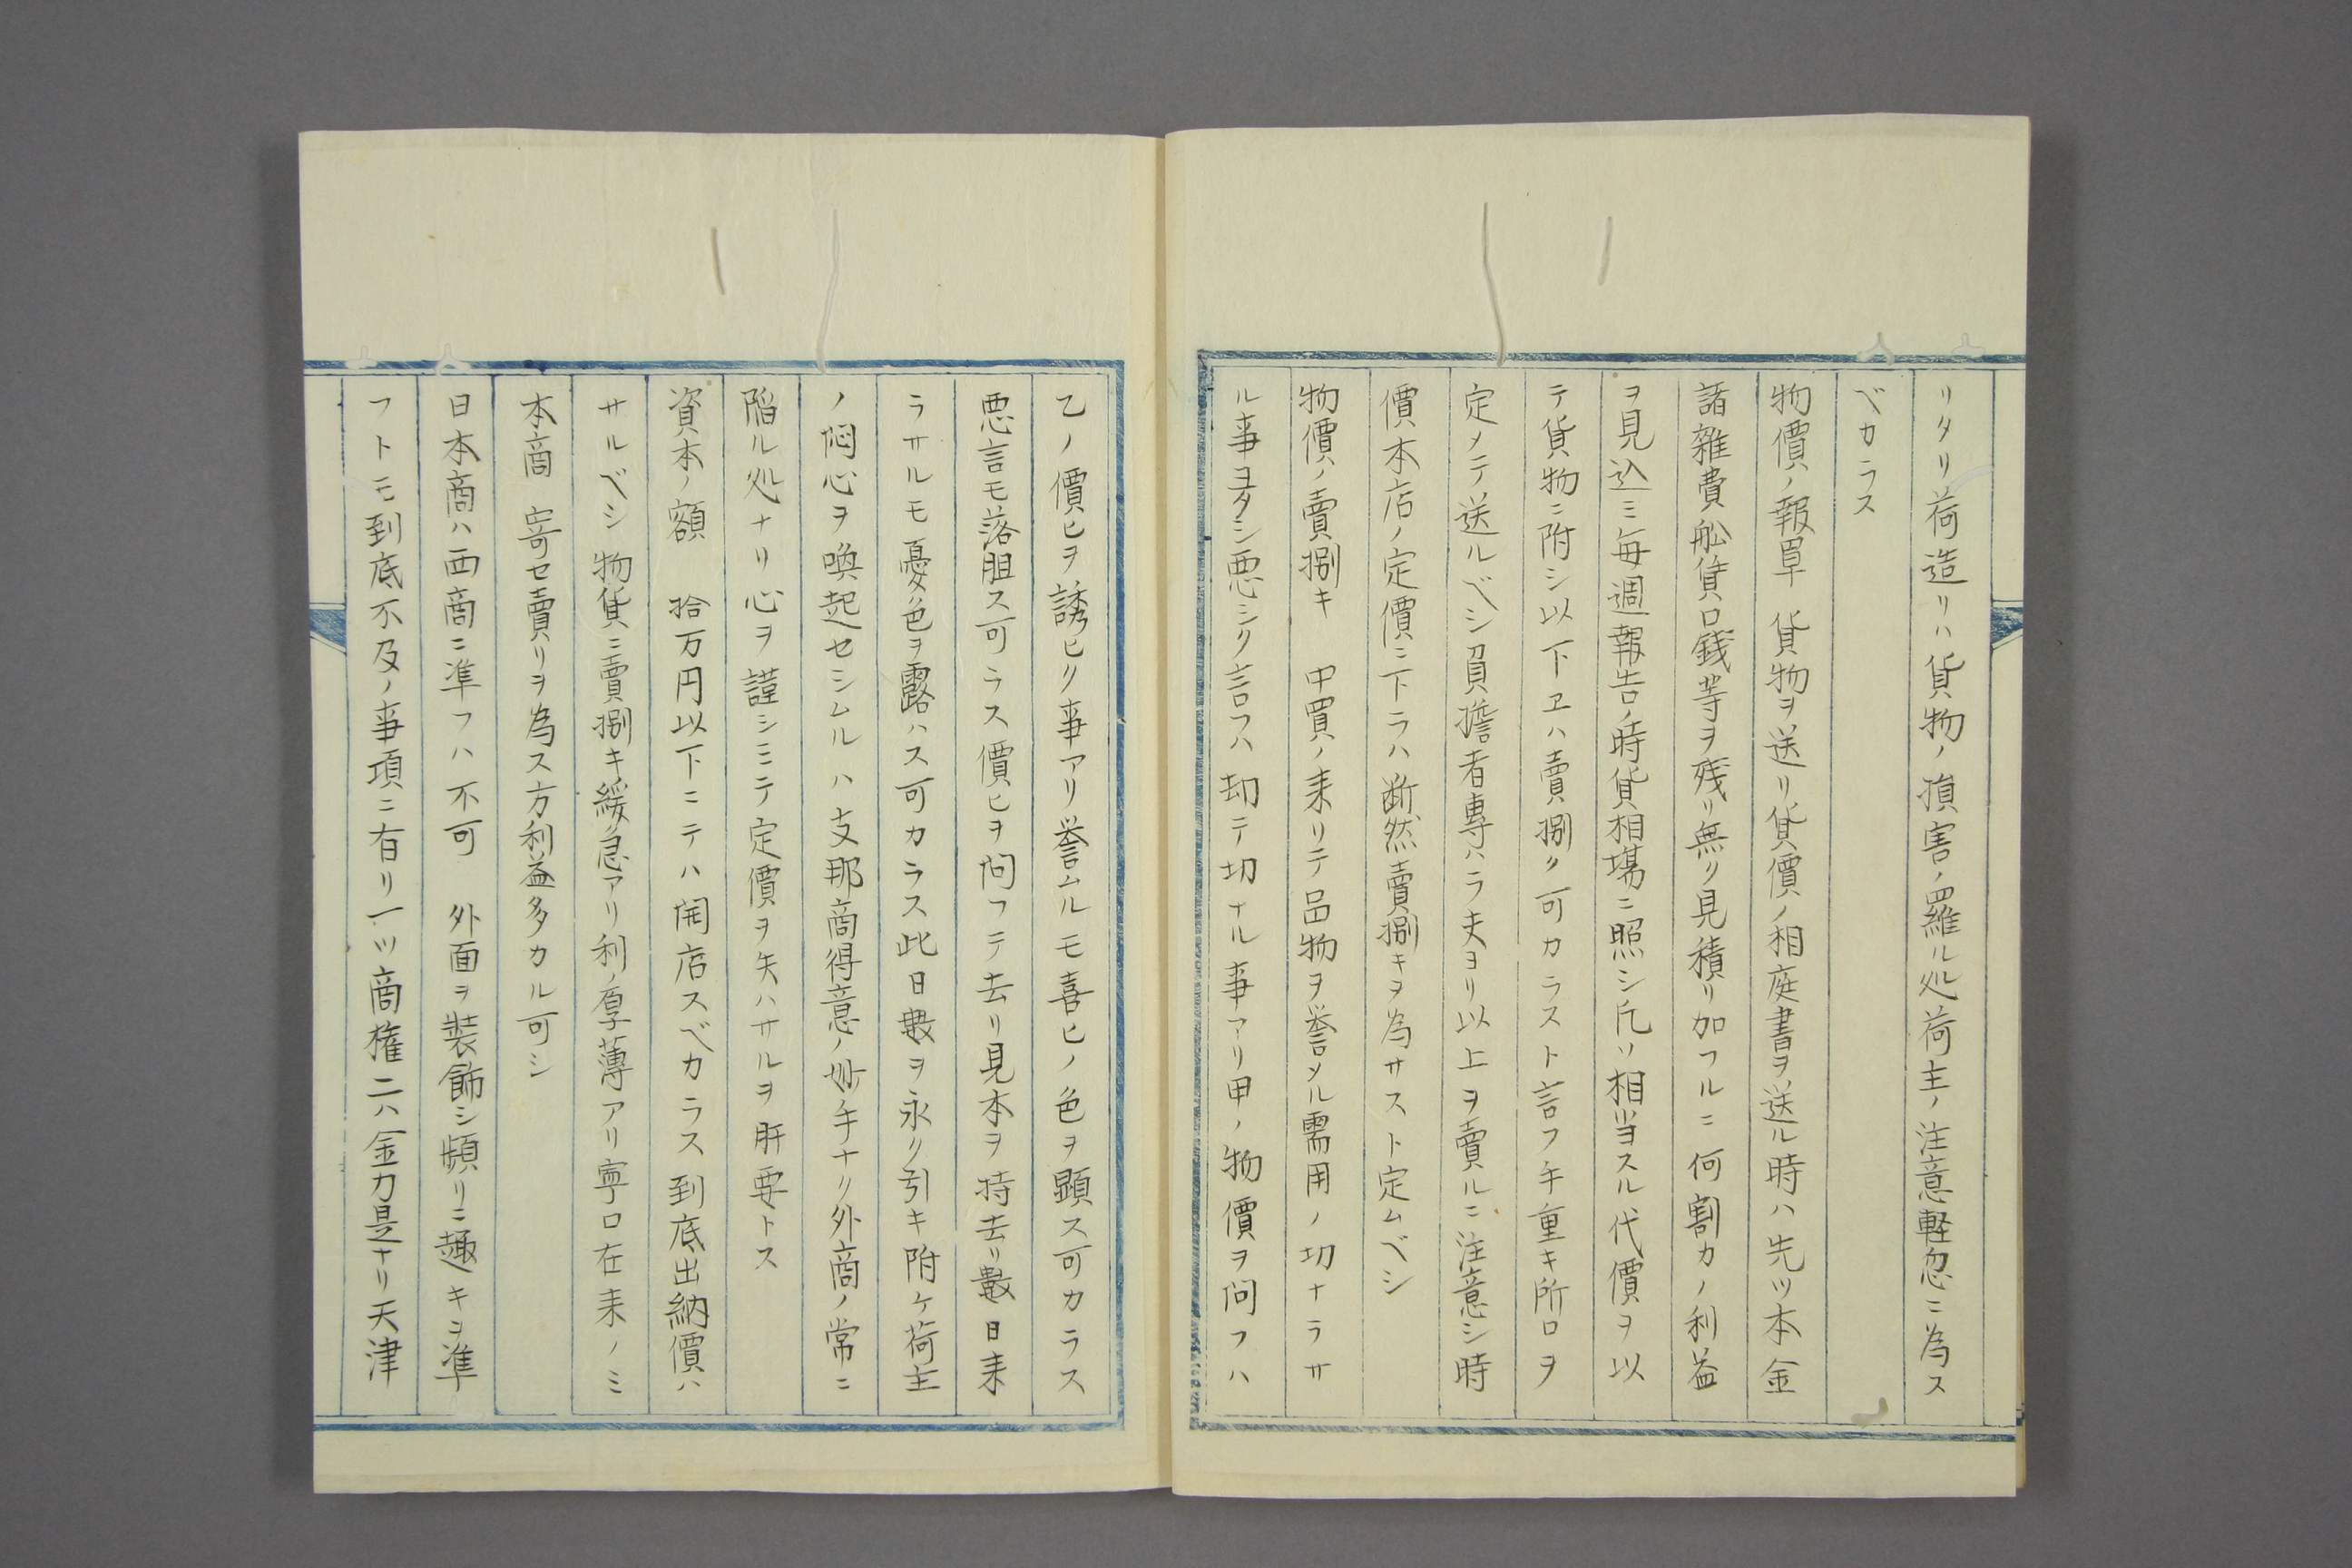 リタリ荷造リハ貨物ノ損害ノ羅ル処荷主ノ注意軽忽ニ為ス
ベカラス
物價ノ報単　貨物ヲ送リ貨價ノ相庭書ヲ送ル時ハ先ツ本金
諸雑費舩貨口銭等ヲ残リ無リ見積リ加フルニ何割カノ利益
ヲ見込ミ毎週報告ノ時貨相場ニ照シ凡ソ相当スル代價ヲ以
テ貨物ニ附シ以下ヱハ賣捌ク可カラスト言フ手重キ所ロヲ
定メテ送ルベシ負擔者専ハラ夫ヨリ以上ヲ賣ルニ注意シ時
價本店ノ定價ニ下ラハ断然賣捌キヲ為サスト定ムベシ
物價ノ賣捌キ　中買ノ来リテ品物ヲ誉メル需用ノ切ナラサ
ル事ヨタシ悪シク言フハ却テ切ナル事アリ甲ノ物價ヲ问フハ
乙ノ價ヒヲ誘ヒク事アリ誉ムルモ喜ヒノ色ヲ顕ス可カラス
悪言モ落胆ス可ラス價ヒヲ问フテ去リ見本ヲ持去リ數日来
ラサルモ憂色ヲ露ハス可カラス此日數ヲ永ク引キ附ケ荷主
ノ悶心ヲ喚起セシムルハ支那商得意ノ妙手ナリ外商ノ常ニ
陥ル処ナリ心ヲ謹シミテ定價ヲ矢ハサルヲ肝要トス
資本ノ額　拾万円以下ニテハ開店スベカラス到底出納價ハ
サルベシ物貨ニ賣捌キ緩急アリ利ノ厚薄アリ寧ロ在来ノミ
本商　寄セ賣リヲ為ス方利益多カル可シ
日本商ハ西商ニ準フハ不可　外面ヲ装飾シ頻リニ趣キヲ準
フトモ到底不及ノ事項ニ有リ一ツ商権二ハ金力是ナリ天津